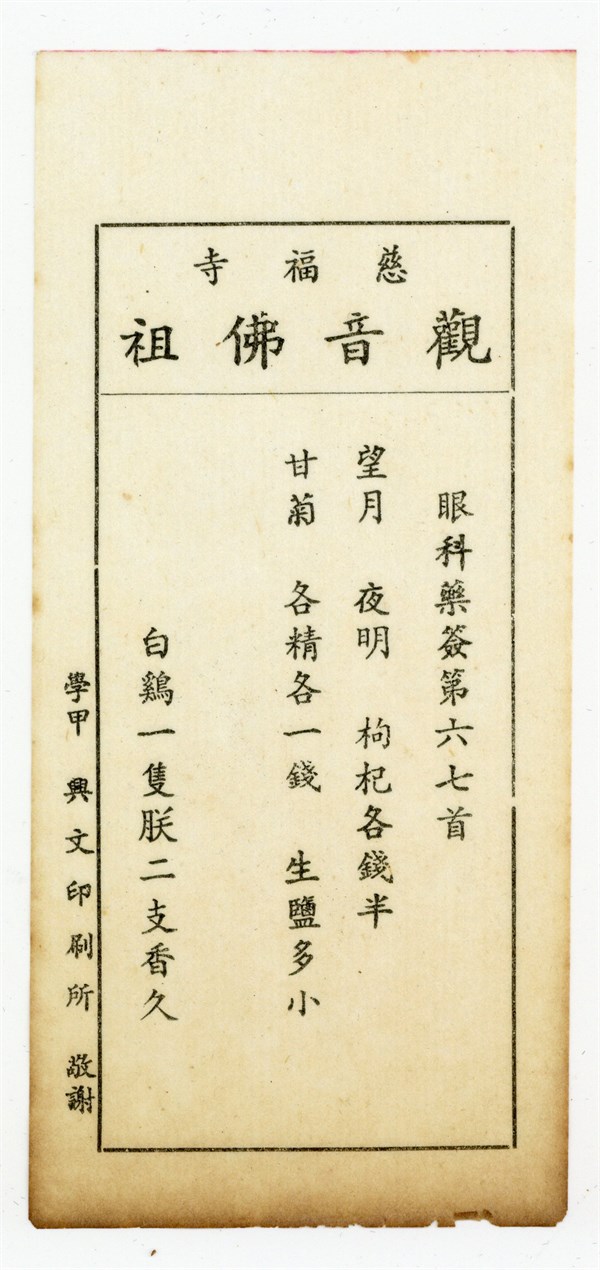 慈福寺
觀音佛祖
眼科藥簽第六七首
望月 夜明 枸杞各錢半
甘菊 各精各一錢 生鹽多小
白鷄一隻朕二支香久
學甲 興文印刷所 敬謝